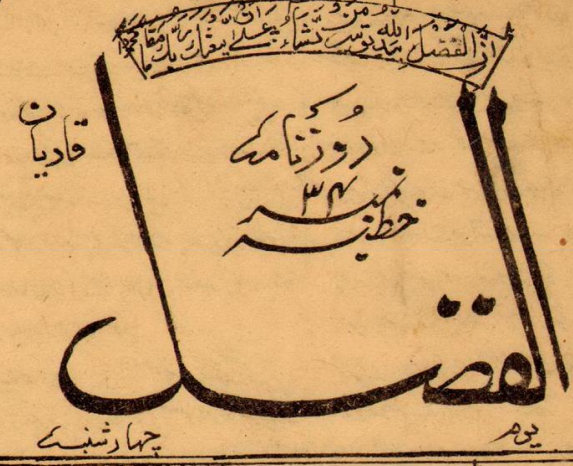 ان الفضل بيد الله يؤتيه من يشاء عسى ان يبعثك ربك مقاما محمودا
قادیان
روزنامہ
خطبہ نمبر ۳۴
الفضل
یوم چہار شنبہ